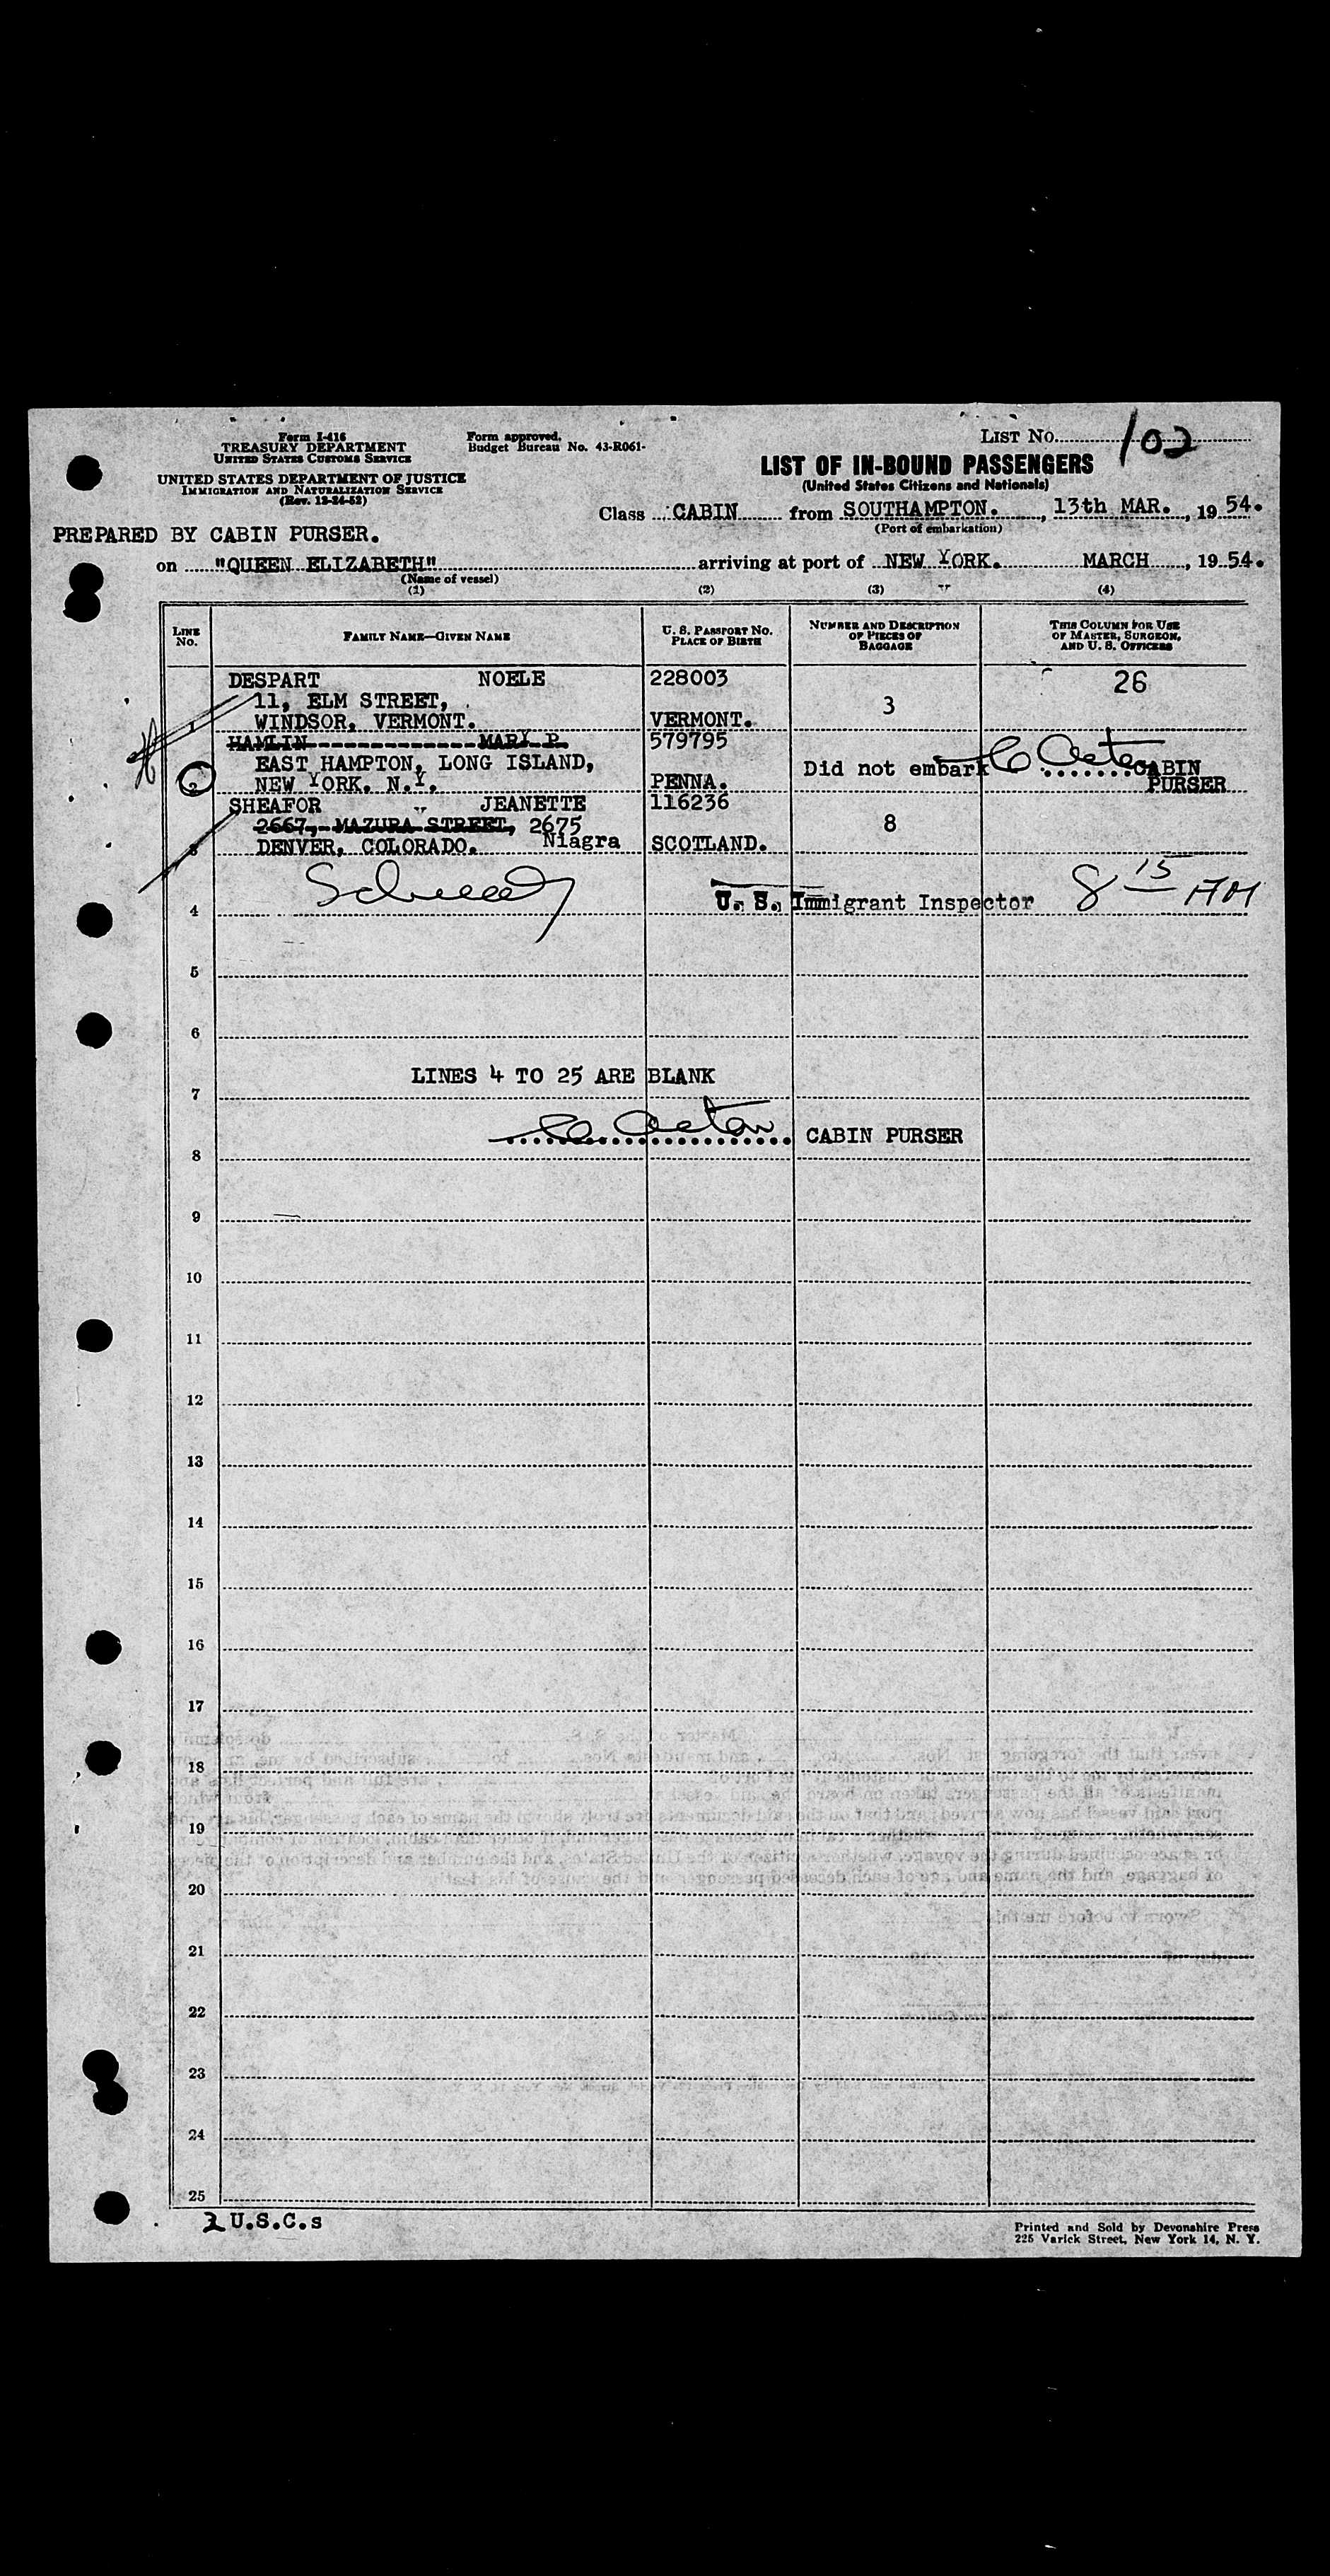 Form I-416
TREASURY DEPARTMENT
UNITED STATES CUSTOMS SERVICE
UNITED STATES DEPARTMENT OF JUSTICE
IMMIGRATION AND NATURALIZATION SERVICE
(Rev. 12-24-52)
Form approved.
Budget Bureau No. 43-R061-
LIST NO. 102
LIST OF IN-BOUND PASSENGERS
(United States Citizens and Nationals)
Class CABIN from SOUTHAMPTON. , 13th MAR. , 19 54.
(Port of embarkation)
PREPARED BY CABIN PURSER.
on "QUEEN ELIZABETH" arriving at port of NEW YORK. MARCH , 19 54.
(Name of vessel)
(1) (2) (3) (4)
LINE No. FAMILY NAME—GIVEN NAME U. S. PASSPORT NO. PLACE OF BIRTH NUMBER AND DESCRIPTION OF PIECES OF BAGGAGE THIS COLUMN FOR USE OF MASTER, SURGEON, AND U. S. OFFICERS
DESPART NOELE 228003 26
11, ELM STREET, 3
1 WINDSOR, VERMONT. VERMONT.
HAMLIN MARY P. 579795
EAST HAMPTON, LONG ISLAND, Did not embark CABIN
2 NEW YORK. N.Y. PENNA. PURSER
SHEAFOR JEANETTE 116236
2667, MAZURA STREET, 2675 8
3 DENVER, COLORADO. Niagra SCOTLAND.
4 U. S. Immigrant Inspector 8 15 AM
5
6
LINES 4 TO 25 ARE BLANK
7
CABIN PURSER
8
9
10
11
12
13
14
15
16
17
18
19
20
21
22
23
24
25
2 U.S.C.s
Printed and Sold by Devonshire Press
225 Varick Street, New York 14, N. Y.